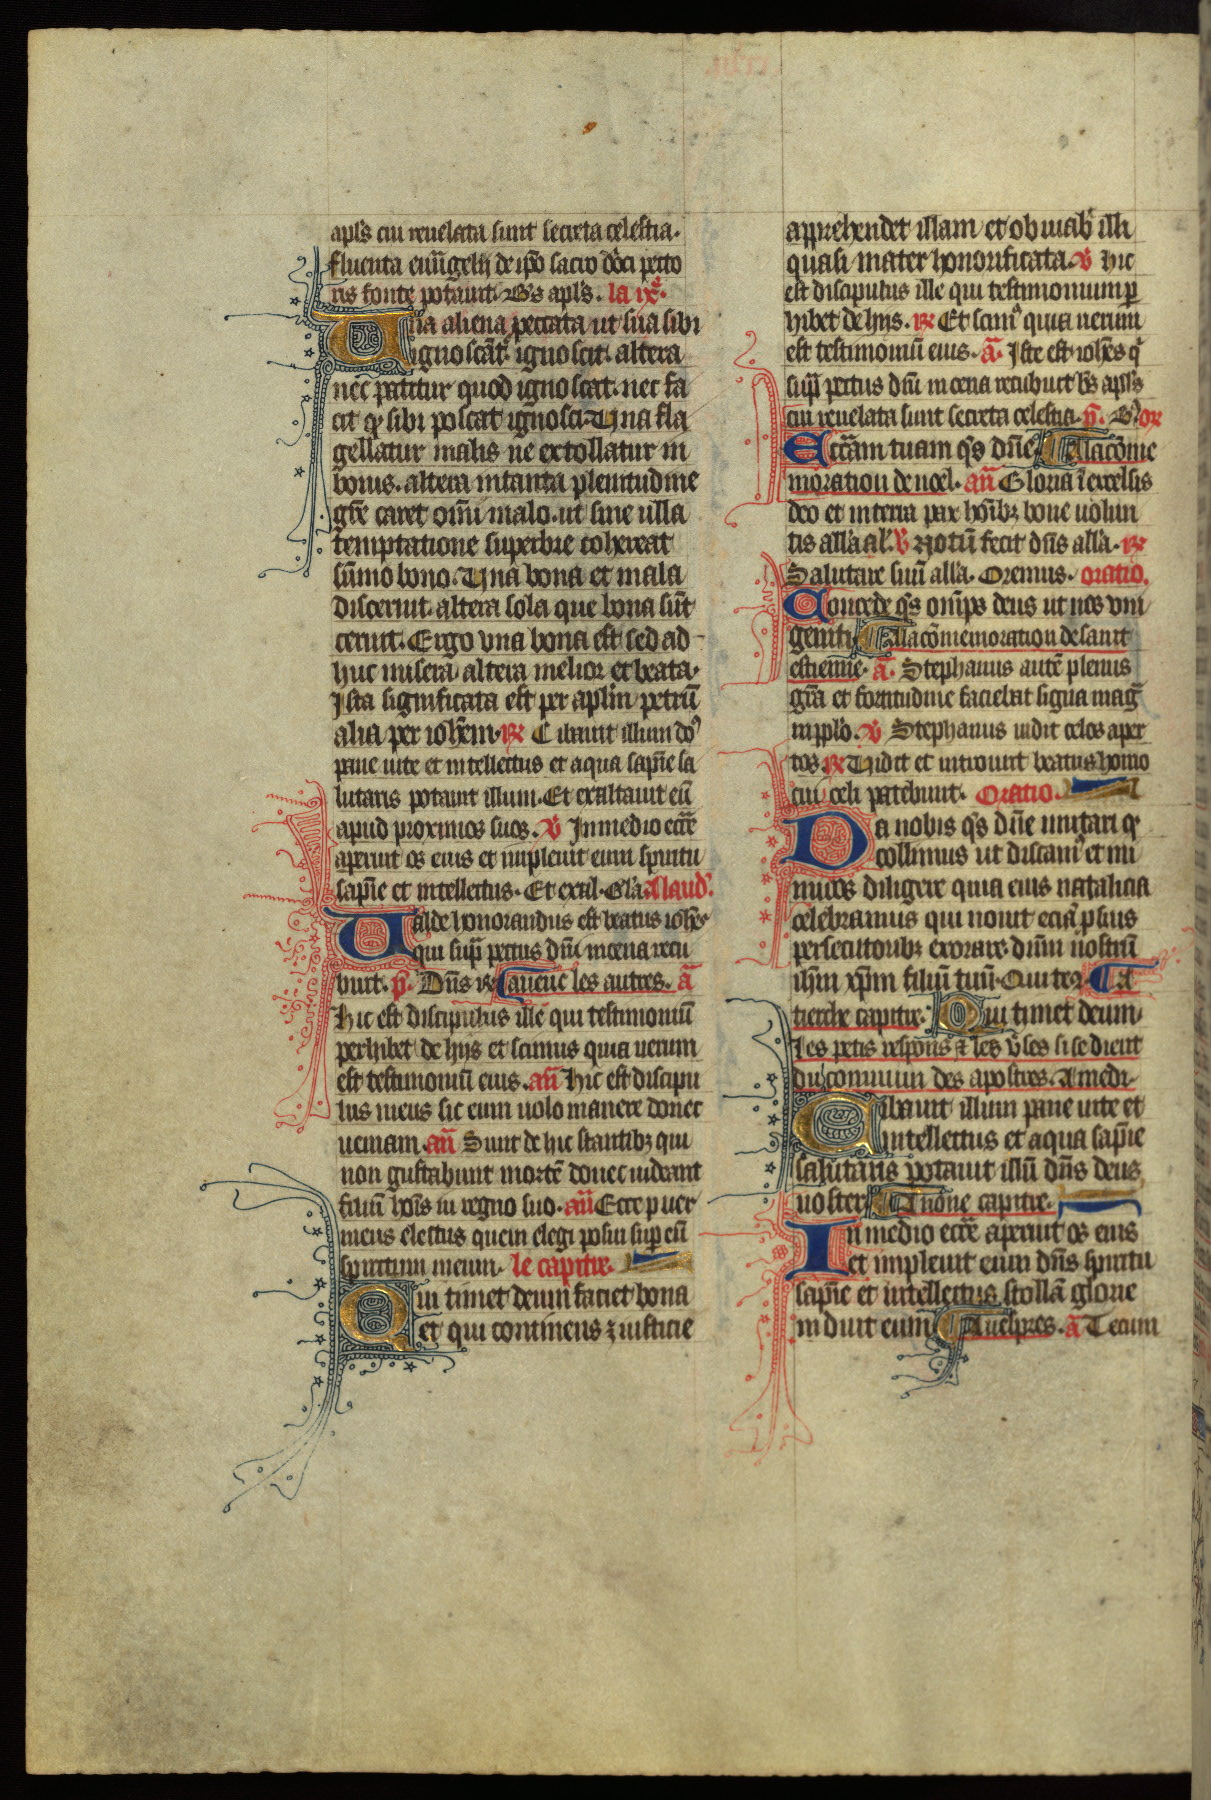 apl's cui reuelata sunt secreta celestia.
fluenta eu̅u̅gelij de ip̅o sacro d̅o̅ci pecto
ris fonte potauit. B's apl's. la ixe.
Una aliena peccata ut sua sibi
ignoscat̅. ignoscit. altera
nec patitur quod ignoscat. nec fa
cit q̅ sibi poscat ignosci. Una fla
gellatur malis ne extollatur in
bonis. altera in tanta plenitudine
gr̅e caret om̅i malo. ut sine ulla
temptatione superbie cohereat
su̅mo bono. Una bona et mala
discernit. altera sola que bona su̅t
cernit. Ergo vna bona est sed ad
huc misera. altera melior et beata.
Ista significata est per apl̅m petru̅
alia per ioh̅em. ℟ Cibauit illum do'
pane uite et intellectus et aqua sap̅ie sa
lutaris potauit illum. Et exaltauit eu̅
apud proximos suos. ℣ In medio ecc̅e
aperuit os eius et impleuit eum spiritu
sap̅ie et intellectus. Et exal. Gl'a. A laud'.
Ualde honorandus est beatus ioh̅es
qui sup̅ pectus dn̅i in cena recu
buit. p̅. Dn̅s re. Auenc les autres. a̅
Hic est discipulus ille qui testimoniu̅
perhibet de hijs et scimus quia uerum
est testimoniu̅ eius. an̅ Hic est discipu
lus meus sic eum uolo manere donec
ueniam. an̅ Sunt de hic stantibꝫ qui
non gustabunt morte̅ donec uideant
filiu̅ ho̅is in regno suo. an̅ Ecce puer
meus electus quem elegi posui sup̅ eu̅
spiritum meum. le capitre.
Qui timet deum faciet bona
et qui continens ꝫ iusticie
apprehendet illam et obuiab' illi
quasi mater honorificata. ℣ Hic
est discipulus ille qui testimonium p̲
hibet de hijs. ℟ Et scim' quia uerum
est testimoniu̅ eius. a̅. Iste est ioh̅es q'
sup̅ pectus dn̅i in cena recubuit b's apl's
cui reuelata sunt secreta celestia. p̅. B' or
Ecc̅am tuam q's dn̅e A la co̅me
moration de noel. an̅ Gloria i̅ excelsis
deo et in terra pax ho̅ibꝫ bone uolun
tis all'a al'. ℣ Notu̅ fecit dn̅s all'a. ℟
Salutare suu̅ all'a. Oremus. oratio.
Concede q's om̅ps deus ut nos vni
geniti A la co̅memoration de saint
estienne. a̅. Stephanus aute̅ plenus
gr̅a et fortitudine faciebat signa mag̅
in pplo. ℣ Stephanus uidit celos aper
tos ℟ Uidit et introiuit beatus homo
cui celi patebunt. Oratio.
Da nobis q's dn̅e imitari q̅
collimus ut discam' et ini
micos diligere quia eius natalicia
celebramus qui nouit ecia̅ p̲ suis
persecutoribꝫ exorare. dn̅m nostru̅
ihm xp̅m filiu̅ tuu̅. Qui tec̅. A
tierche capitre. Qui timet deum.
Les petis respons ⁊ les v̅ses si se dient
du comniun des apostres. A medi.
Cibauit illum pane uite et
intellectus et aqua sap̅ie
salutaris potauit illu̅ dn̅s deus
noster A none capitre.
In medio ecc̅e aperuit os eius
et impleuit eum dn̅s spiritu
sap̅ie et intellectus stolla̅ glorie
induit eum A uespres. a̅ Tecum